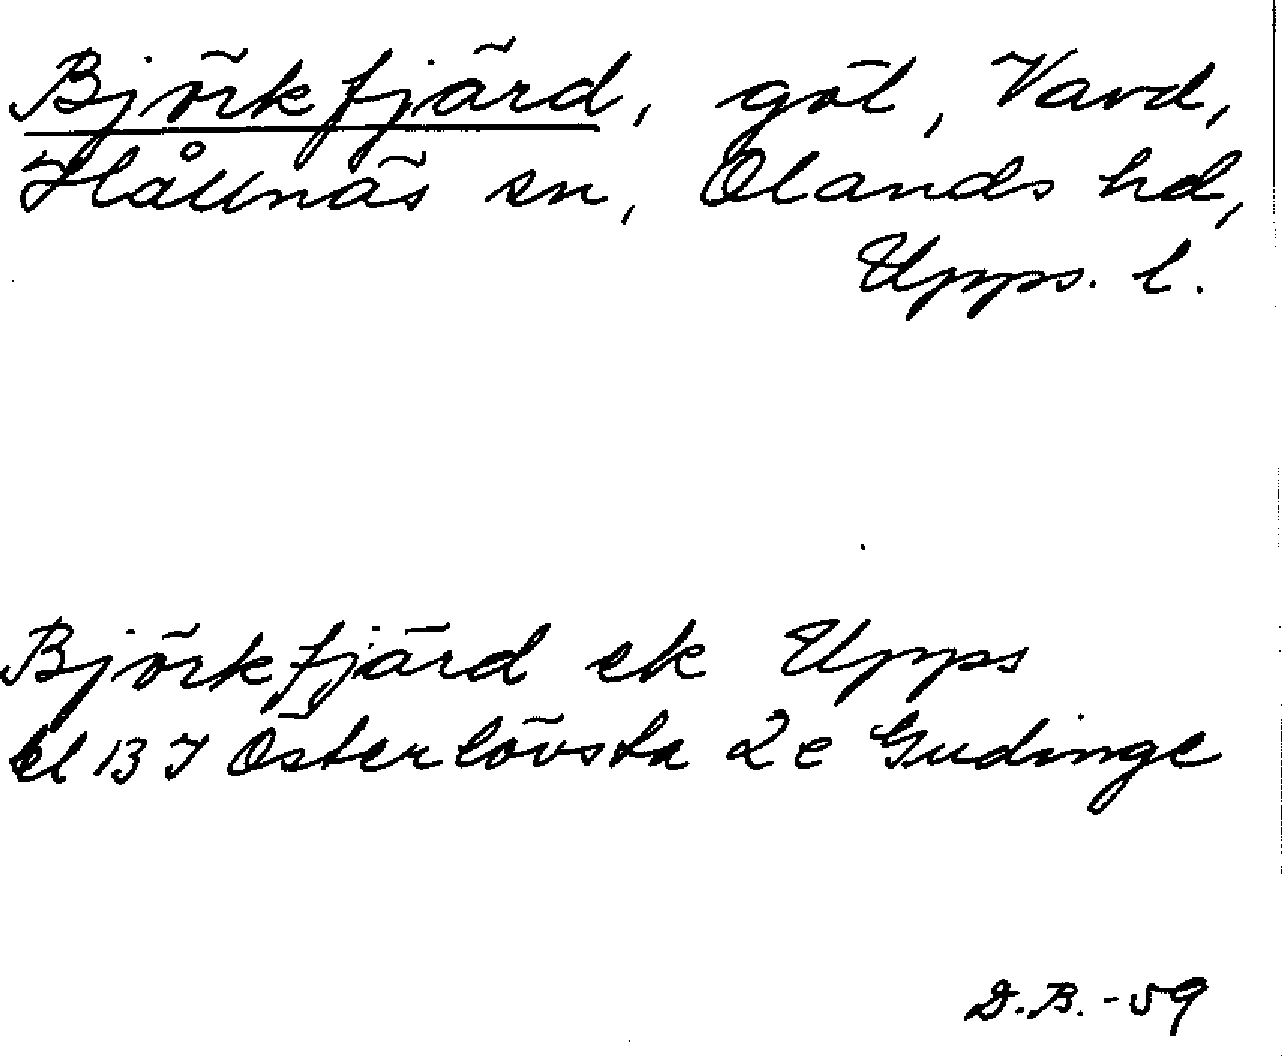 Björkfjärd, göl, Vavd,
Hållnäs sn, Olands hd,
Upps. l.
Björkfjärd ek Upps
bl 13 I Österlövsta 2 e Gudinge
D.B. -59